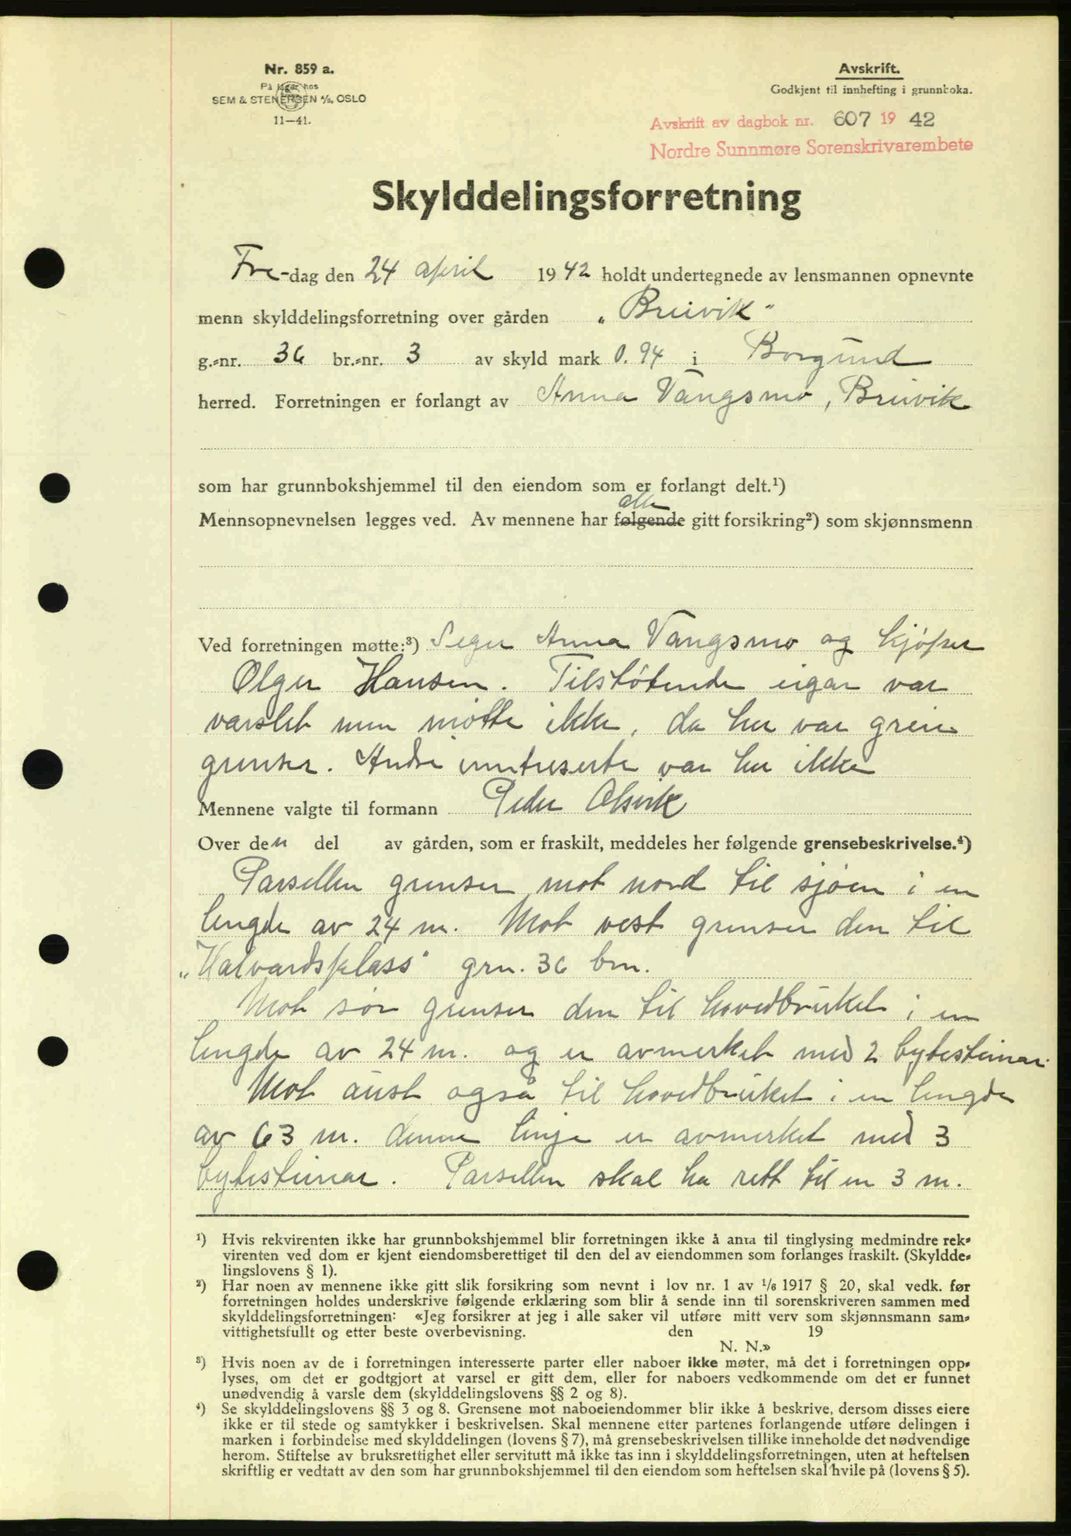 Nr. 859 a.
På lager hos
SEM & STENERSEN A/S, OSLO
11—41.
Avskrift.
Godkjent til innhefting i grunnboka.
Avskrift av dagbok nr. 607 1942
Nordre Sunnmøre Sorenskrivarembete
Skylddelingsforretning
Fre-dag den 24 april 1942 holdt undertegnede av lensmannen opnevnte
menn skylddelingsforretning over gården „Breivik"
g.-nr. 36 br.-nr. 3 av skyld mark 0.94 i Borgund
herred. Forretningen er forlangt av Anna Vangsmo, Breivik
som har grunnbokshjemmel til den eiendom som er forlangt delt.¹)
alle
Mennsopnevnelsen legges ved. Av mennene har følgende gitt forsikring²) som skjønnsmenn
Ved forretningen møtte:³) Seger Anna Vangsmo og kjøper
Olger Hansen. Tilstøtende eigar var
varslet men møtte ikke, da her var greie
grenser. Andre inntreserte var her ikke
Mennene valgte til formann Peder Alsvik
Over den del av gården, som er fraskilt, meddeles her følgende grensebeskrivelse.⁴)
Parsellen grenser mot nord til sjøen i en
lengde av 24 m. Mot vest grenser den til
„Halvardsplass" grn. 36 brn.
Mot sør grenser den til hovedbruket i en
lengde av 24 m. og er avmerket med 2 bytesteinar.
Mot aust også til hovedbruket i en lengde
av 63 m. denne linje er avmerket med 3
bytesteinar. Parsellen skal ha rett til en 3 m.
¹) Hvis rekvirenten ikke har grunnbokshjemmel blir forretningen ikke å anta til tinglysing medmindre rek-
virenten ved dom er kjent eiendomsberettiget til den del av eiendommen som forlanges fraskilt. (Skyldde-
lingslovens § 1).
²) Har noen av mennene ikke gitt slik forsikring som nevnt i lov nr. 1 av 1/6 1917 § 20, skal vedk. før
forretningen holdes underskrive følgende erklæring som blir å sende inn til sorenskriveren sammen med
skylddelingsforretningen: «Jeg forsikrer at jeg i alle saker vil utføre mitt verv som skjønnsmann sam-
vittighetsfullt og etter beste overbevisning. den 19
N. N.»
³) Hvis noen av de i forretningen interesserte parter eller naboer ikke møter, må det i forretningen opp-
lyses, om det er godtgjort at varsel er gitt dem, eller for naboers vedkommende om det er funnet
unødvendig å varsle dem (skylddelingslovens §§ 2 og 8).
⁴) Se skylddelingslovens §§ 3 og 8. Grensene mot naboeiendommer blir ikke å beskrive, dersom disses eiere
ikke er til stede og samtykker i beskrivelsen. Skal mennene etter partenes forlangende utføre delingen i
marken i forbindelse med skylddelingen (lovens § 7), må grensebeskrivelsen tillike inneholde det nødvendige
herom. Stiftelse av bruksrettighet eller servitutt må ikke tas inn i skylddelingsforretningen, uten at heftelsen
skriftlig er vedtatt av den som har grunnbokshjemmel til den eiendom som heftelsen skal hvile på (lovens § 5).